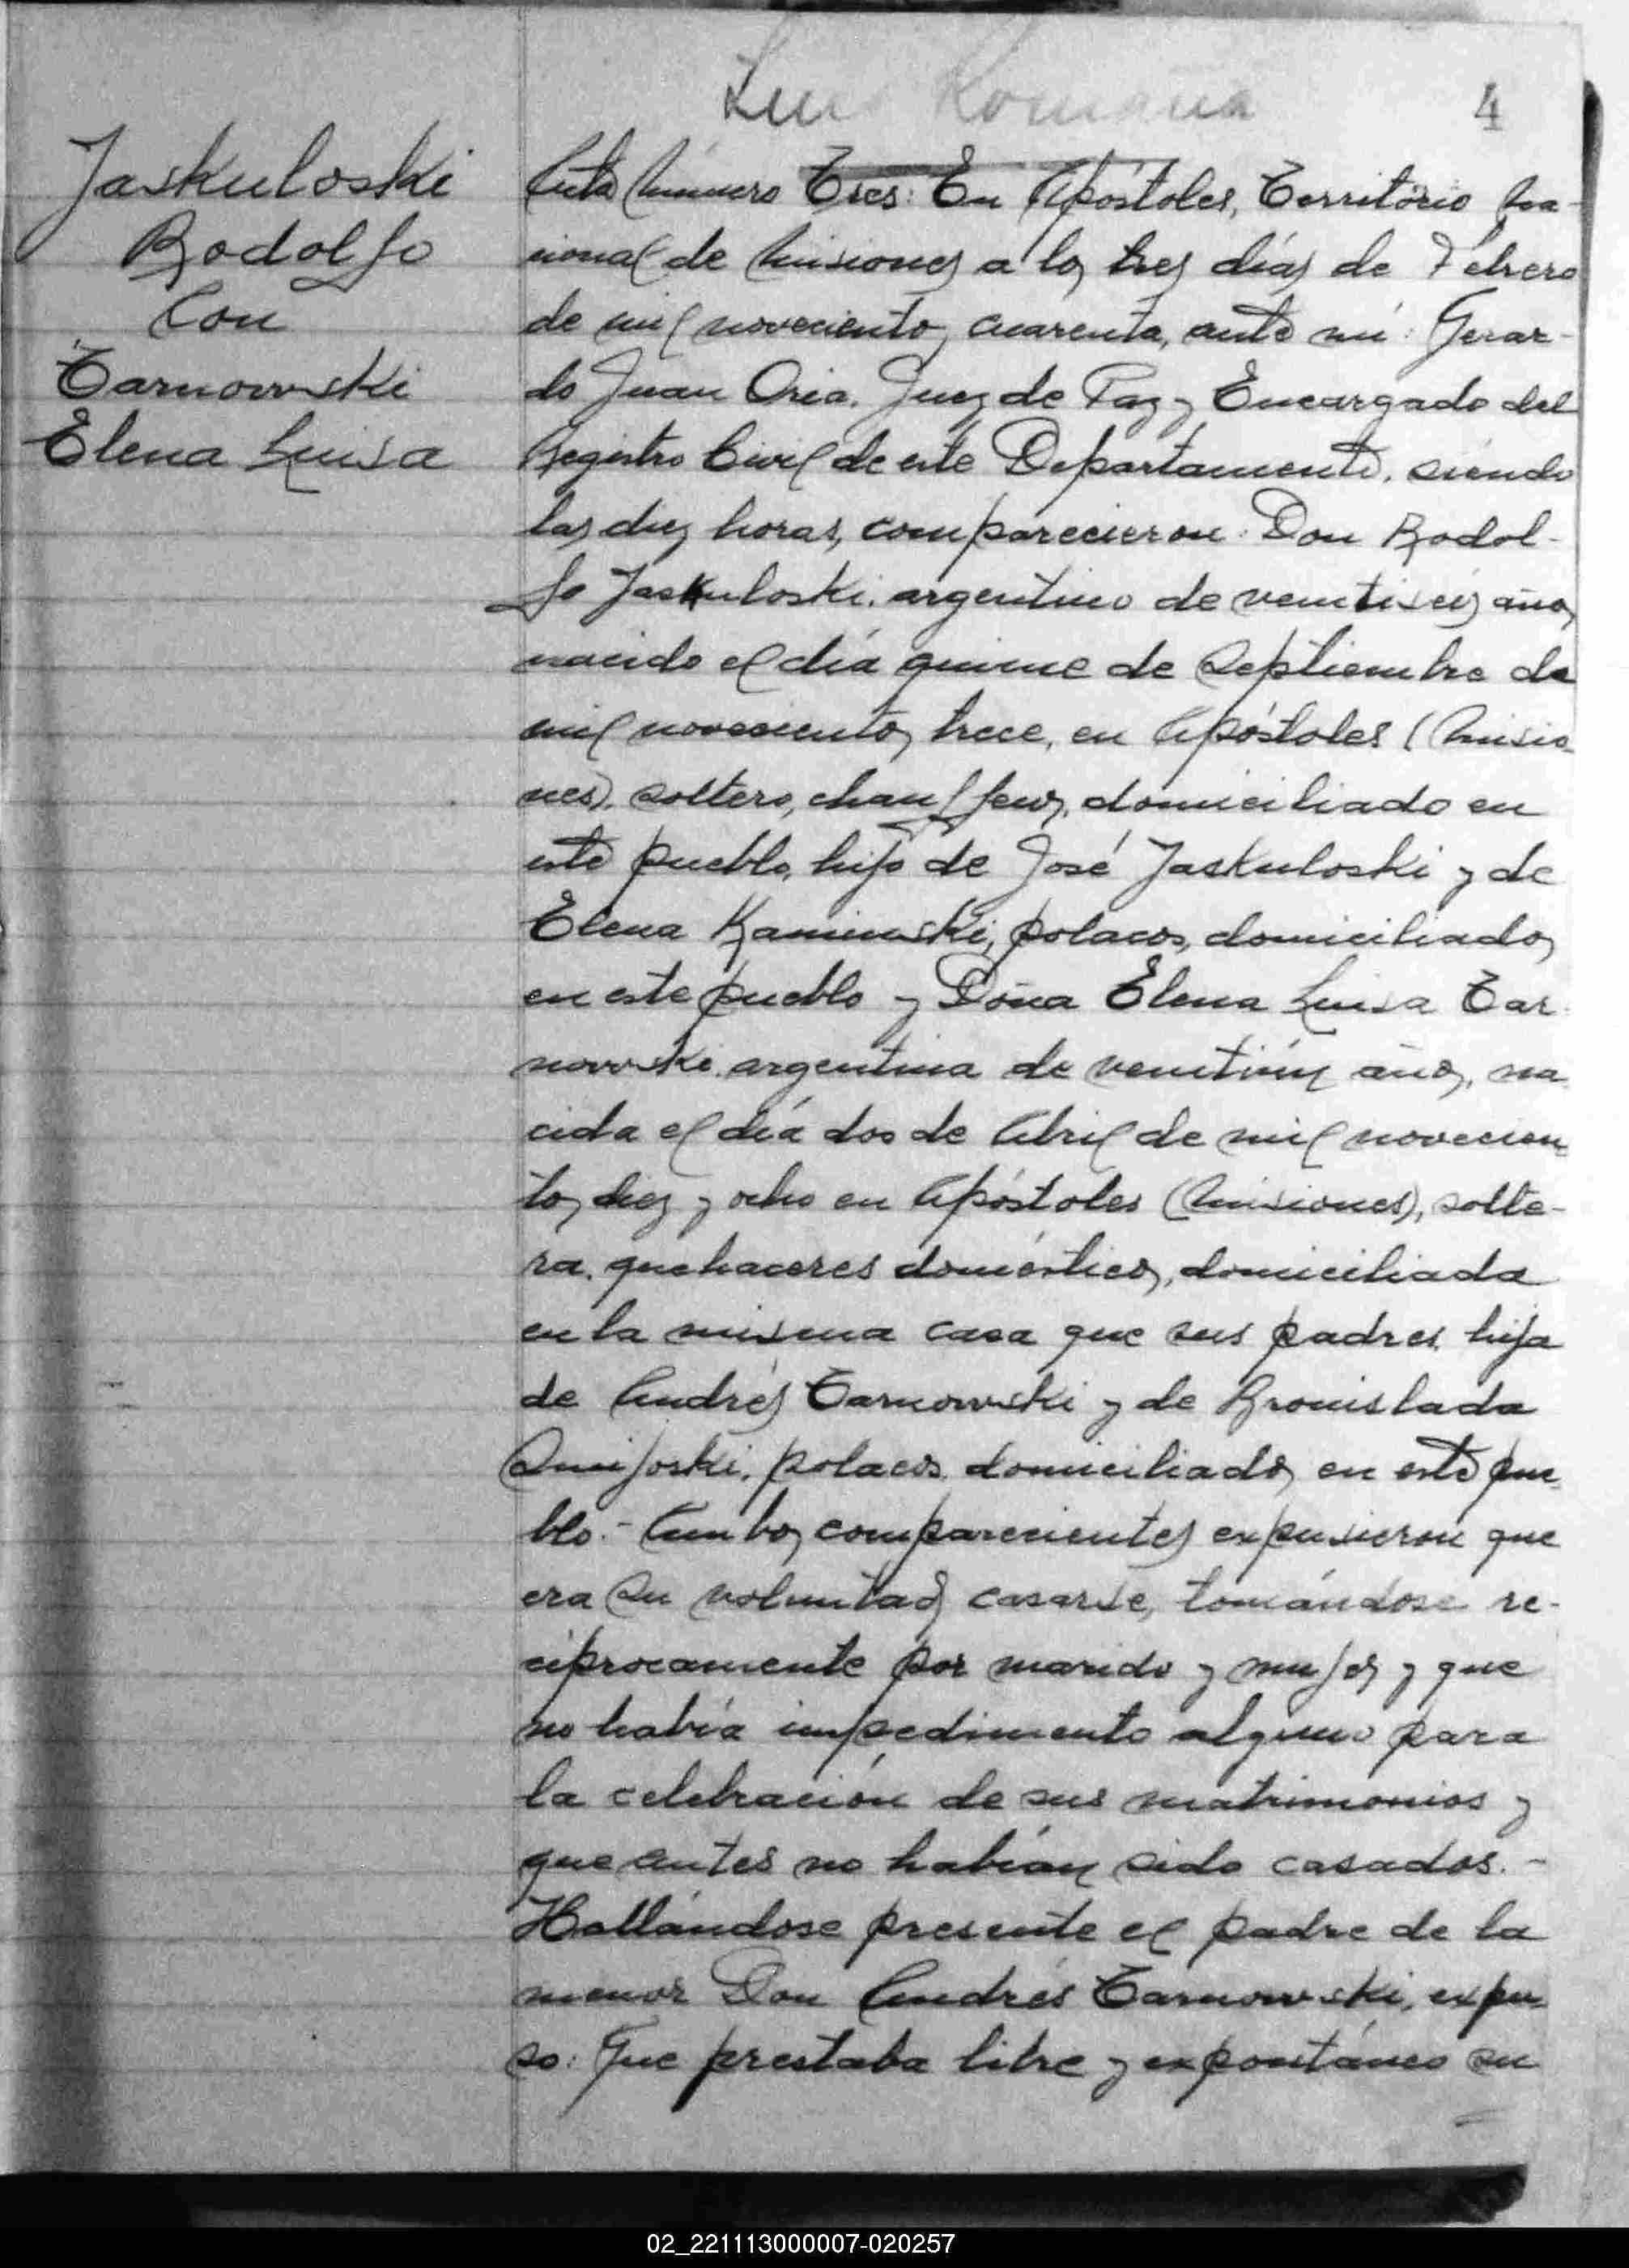 Luis Romaña
4
Jaskuloski
Rodolfo
Con
Tarnowski
Elena Luisa
Acta Número Tres: En Apóstoles, Territorio Na-
cional de Misiones a los tres días de Febrero
de mil novecientos cuarenta, ante mí: Gerar-
do Juan Oria. Juez de Paz y Encargado del
Registro Civil de este Departamento, siendo
las diez horas, comparecieron: Don Rodol-
fo Jaskuloski, argentino de veintiseis años,
nacido el día quince de Septiembre de
mil novecientos trece, en Apóstoles (Misio-
nes), soltero, chauffeur, domiciliado en
este pueblo, hijo de José Jaskuloski y de
Elena Kaminski, polacos, domiciliados
en este pueblo y Doña Elena Luisa Tar-
nowski, argentina de veintiún años, na-
cida el día dos de Abril de mil novecien-
tos diez y ocho en Apóstoles (Misiones), solte-
ra, quehaceres domésticos, domiciliada
en la misma casa que sus padres, hija
de Andrés Tarnowski y de Bronislada
polacos domiciliados en este pue-
blo.- Ambos comparecientes expusieron que
era su voluntad casarse, tomándose re-
ciprocamente por marido y mujer y que
no había impedimento alguno para
la celebración de sus matrimonios y
que antes no habían sido casados.-
Hallándose presente el padre de la
menor Don Andrés Tarnowski, expu-
so: Que prestaba libre y expontáneo su
02_221113000007-020257